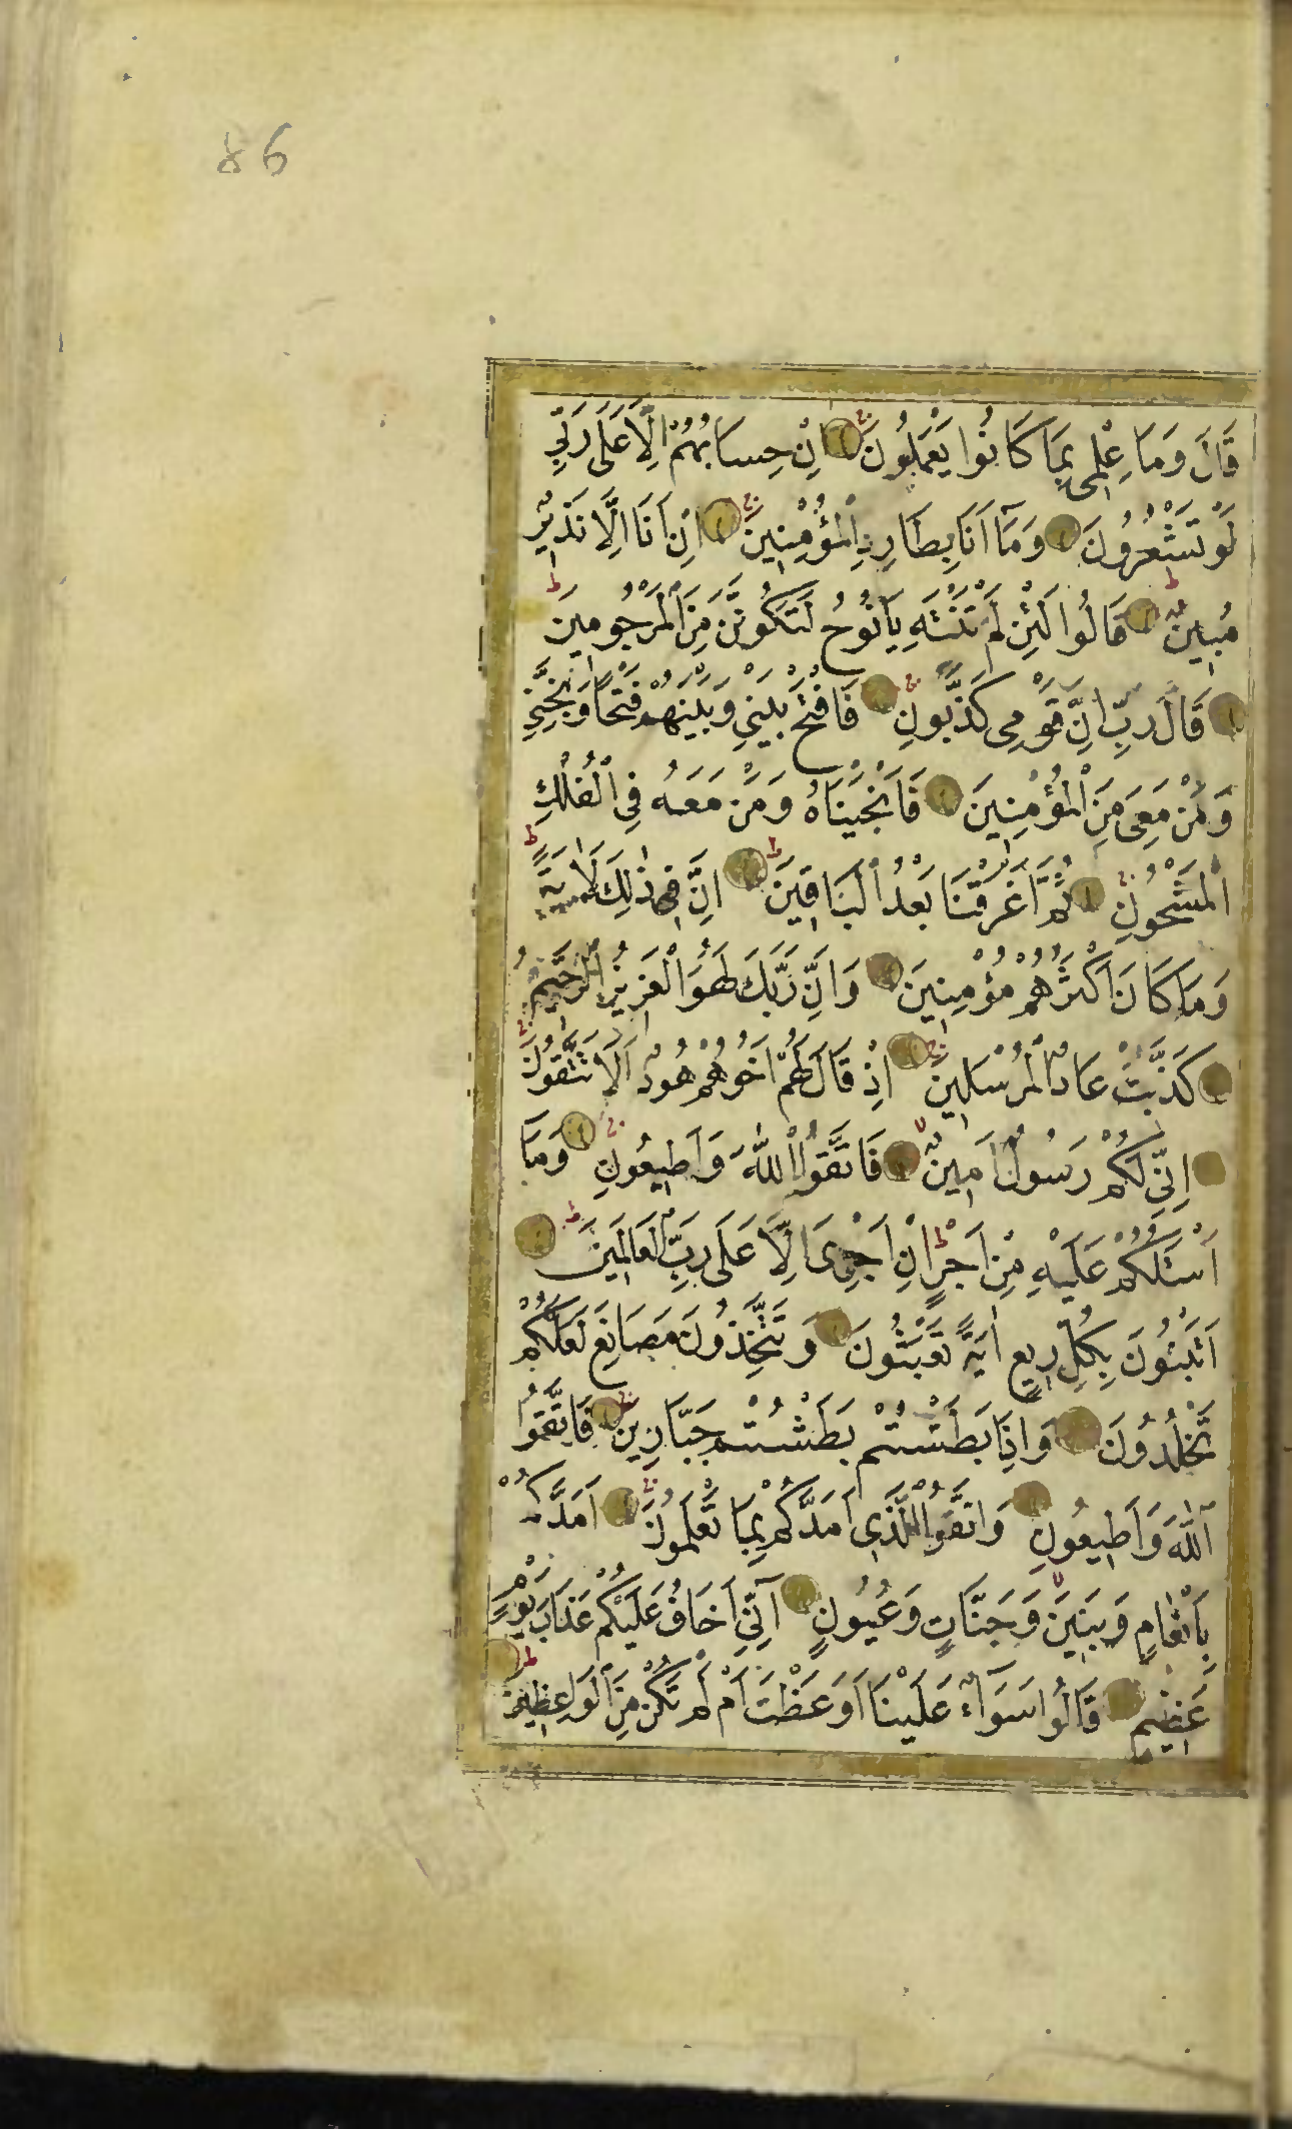 86
قَالَ وَمَا عِلْمِى بِمَا كَانُوا يَعْمَلُونَ اِنْ حِسَابُهُمْ اِلَّا عَلٰى رَبِّى
لَوْ تَشْعُرُونَ وَمَآ اَنَا بِطَارِدِ الْمُؤْمِنِينَ اِنْ اَنَا اِلَّا نَذِيرٌ
مُبِينٌ قَالُوا لَئِنْ لَمْ تَنْتَهِ يَانُوحُ لَتَكُونَنَّ مِنَ الْمَرْجُومِينَ
قَالَ رَبِّ اِنَّ قَوْمِى كَذَّبُونِ فَافْتَحْ بَيْنِى وَبَيْنَهُمْ فَتْحًا وَنَجِّنِى
وَمَنْ مَعِىَ مِنَ الْمُؤْمِنِينَ فَاَنْجَيْنَاهُ وَمَنْ مَعَهُ فِى الْفُلْكِ
الْمَشْحُونِ ثُمَّ اَغْرَقْنَا بَعْدُ الْبَاقِينَ اِنَّ فِى ذٰلِكَ لَاٰيَةً
وَمَا كَانَ اَكْثَرُهُمْ مُؤْمِنِينَ وَاِنَّ رَبَّكَ لَهُوَ الْعَزِيزُ الرَّحِيمُ
كَذَّبَتْ عَادٌ الْمُرْسَلِينَ اِذْ قَالَ لَهُمْ اَخُوهُمْ هُودٌ اَلَا تَتَّقُونَ
اِنِّى لَكُمْ رَسُولٌ اَمِينٌ فَاتَّقُوا اللّٰهَ وَاَطِيعُونِ وَمَا
اَسْئَلُكُمْ عَلَيْهِ مِنْ اَجْرٍ اِنْ اَجْرِىَ اِلَّا عَلٰى رَبِّ الْعَالَمِينَ
اَتَبْنُونَ بِكُلِّ رِيعٍ اٰيَةً تَعْبَثُونَ وَتَتَّخِذُونَ مَصَانِعَ لَعَلَّكُمْ
تَخْلُدُونَ وَاِذَا بَطَشْتُمْ بَطَشْتُمْ جَبَّارِينَ فَاتَّقُوا
اللّٰهَ وَاَطِيعُونِ وَاتَّقُوا الَّذِى اَمَدَّكُمْ بِمَا تَعْلَمُونَ اَمَدَّكُمْ
بِاَنْعَامٍ وَبَنِينَ وَجَنَّاتٍ وَعُيُونٍ اِنِّى اَخَافُ عَلَيْكُمْ عَذَابَ يَوْمٍ
عَظِيمٍ قَالُوا سَوَآءٌ عَلَيْنَا اَوَعَظْتَ اَمْ لَمْ تَكُنْ مِنَ الْوَاعِظِينَ